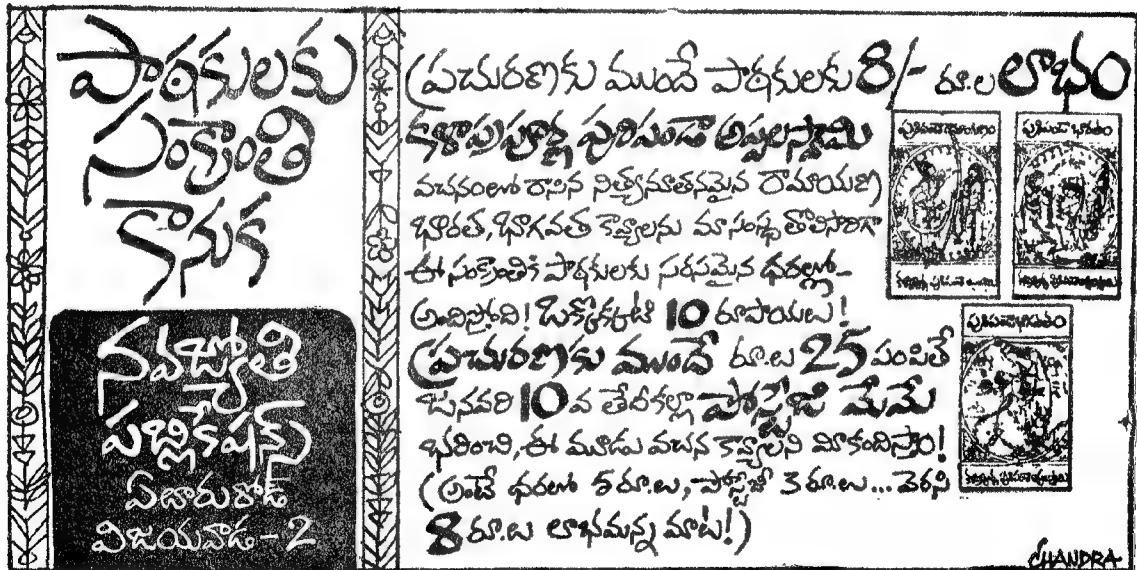 పాఠకులకు
సంక్రాంతి
కానుక
నవజ్యోతి
పబ్లికేషన్స్
ఏలూరురోడ్
విజయవాడ - 2
ప్రచురణకు ముందే పాఠకులకు 8/- రూ.ల లాభం
కళాప్రపూర్ణ పురిపండా అప్పలస్వామి
వచనంలో రాసిన నిత్యనూతనమైన రామాయణ,
భారత, భాగవత కావ్యాలను మా సంస్థ తొలిసారిగా
ఈ సంక్రాంతికి పాఠకులకు సరసమైన ధరల్లో-
అందిస్తోంది! ఒక్కొక్కటి 10 రూపాయలు!
ప్రచురణకు ముందే రూ.లు 25 పంపితే
జనవరి 10వ తేదీకల్లా పోస్టేజి మేమే
భరించి, ఈ మూడు వచన కావ్యాలని మీకందిస్తాం!
(అంటే ధరలో 5 రూ.లు, పోస్టేజీ 3 రూ.లు... వెరసి
8 రూ.లు లాభమన్న మాట!)
పురిపండా భారతం
పురిపండా భాగవతం
CHANDRA